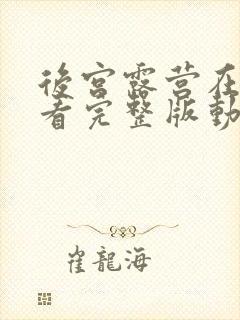 後宮露营在
看完整版動
崔龍海